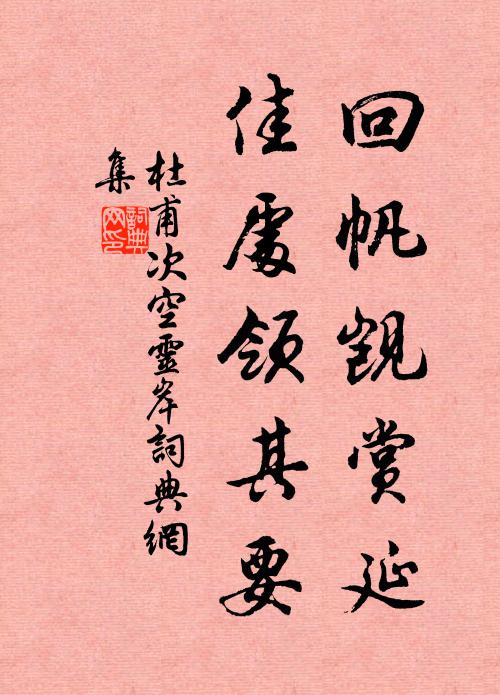 回帆覬賞延
佳處領其要
杜甫次空靈岸詞典網
集
詞典
网印